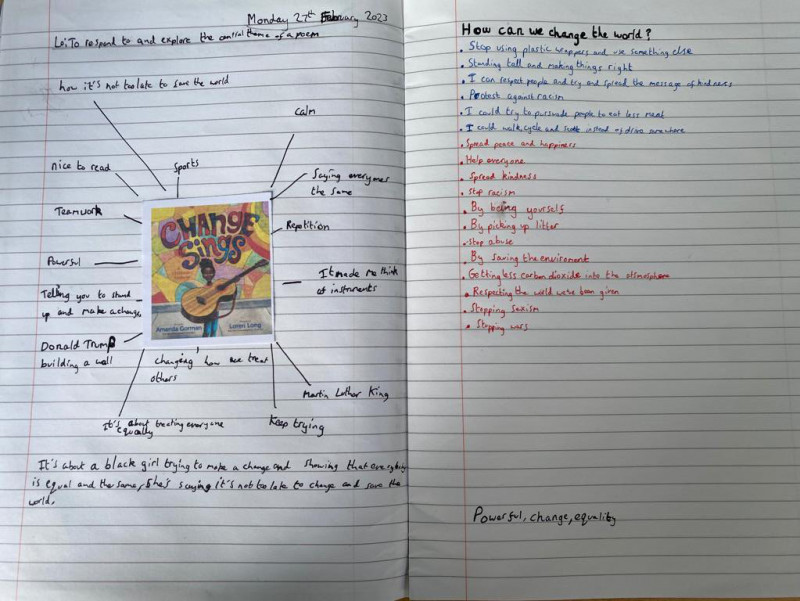 Monday 27th February 2023
L.o: To respond to and explore the central theme of a poem
how it's not too late to save the world
Calm
nice to read
Sports
Saying everyones
the same
Teamwork
Repitition
Powerful
It made me think
of instruments
Telling you to stand
up and make a change
Donald Trump
building a wall
CHANGE
Sings
Amanda Gorman
Loren Long
changing how we treat
others
Martin Luthor King
It's about treating everyone
equally
Keep trying
It's about a black girl trying to make a change and showing that everybody
is equal and the same, She's saying it's not too late to change and save the
world.
How can we change the world?
• Stop using plastic wrappers and use something else
• Standing tall and making things right
• I can respect people and try and spread the message of kindness
• Protest against racism
• I could try to pursuade people to eat less meat
• I could walk, cycle and scoot instead of drive
• Spread peace and happiness
• Help everyone
• Spread kindness
• Stop racism
• By being yourself
• By picking up litter
• Stop abuse
• By saving the enviroment
• Getting less carbon dioxide into the atmosphere
• Respecting the world we've been given
• Stopping sexism
• Stopping wars
Powerful, change, equality